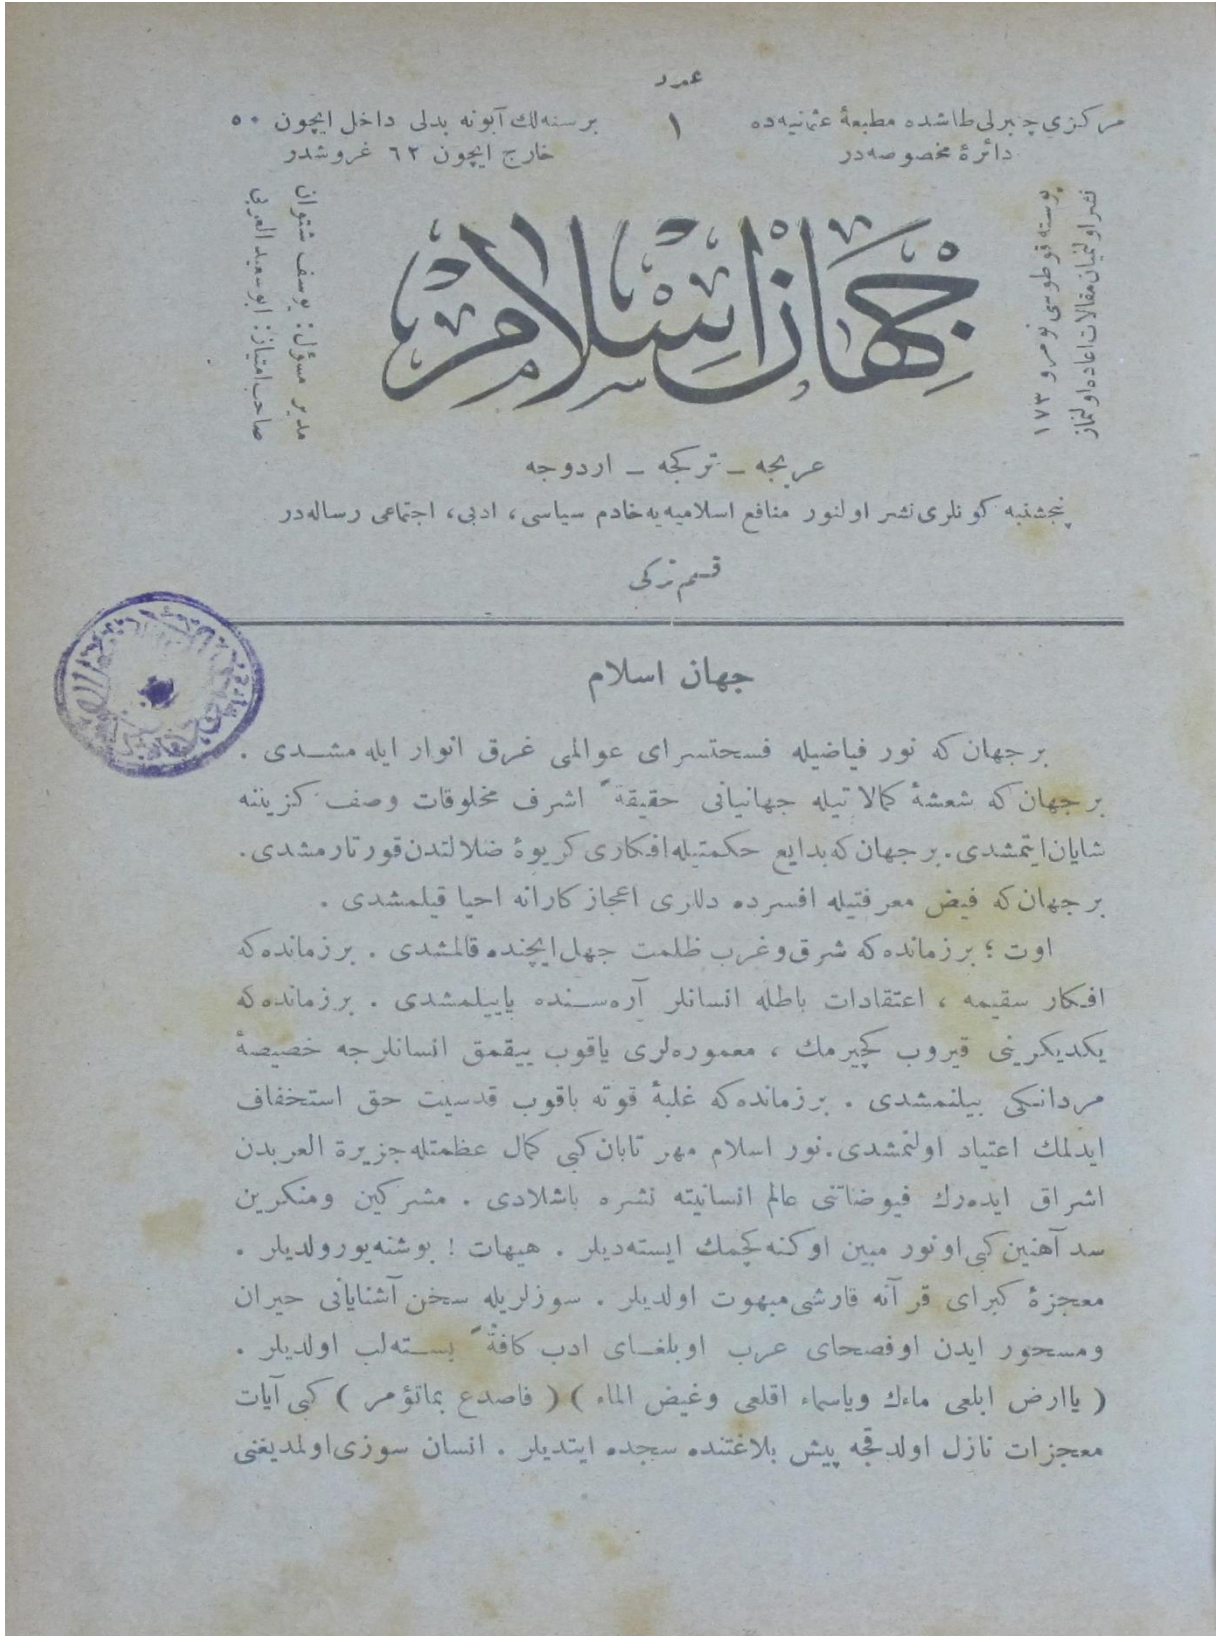 عدد
١
مركزى چنبرلى طاشده مطبعۀ عثمانيه‌ده
دائرۀ مخصوصه‌در
برسنه‌لك آبونه بدلى داخل ايچون ٥٠
خارج ايچون ٦٢ غروشدر
نشر اولنميان مقالات اعاده اولنماز
پوسته قوطوسى نومرو ١٧٣
جهان اسلام
مدير مسؤل: يوسف شتوان
صاحب امتياز: ابوسعيد العربى
عربجه ــ تركجه ــ اردوجه
پنجشنبه كونلرى نشر اولنور منافع اسلاميه‌يه خادم سياسى، ادبى، اجتماعى رساله‌در
قسم تركى
جهان اسلام
بر جهان كه نور فياضيله فسحتسراى عوالمى غرق انوار ايله مشــدى .
بر جهان كه شعشۀ كمالاتيله جهانيانى حقيقةً اشرف مخلوقات وصف كزيننه
شايان ايتمشدى. بر جهان كه بدايع حكمتيله افكارى كريوۀ ضلالتدن قورتارمشدى.
بر جهان كه فيض معرفتيله افسرده دللرى اعجازكارانه احيا قيلمشدى .
اوت ؛ برزمانده‌كه شرق وغرب ظلمت جهل ايچنده قالمشدى . برزمانده‌كه
افكار سقيمه ، اعتقادات باطله انسانلر آره‌ســنده ياييلمشدى . برزمانده‌كه
يكديكرينى قيروب كچيرمك ، معموره‌لرى ياقوب ييقمق انسانلرجه خصيصۀ
مردانكى بيلنمشدى . برزمانده‌كه غلبۀ قوته باقوب قدسيت حق استخفاف
ايدلمك اعتياد اولنمشدى. نور اسلام مهر تابان كبى كمال عظمتله جزيرة العربدن
اشراق ايده‌رك فيوضاتنى عالم انسانيته نشره باشلادى . مشركين ومنكرين
سد آهنين كبى او نور مبين اوكنه كچمك ايسته‌ديلر . هيهات ! بوشنه يورولديلر .
معجزۀ كبراى قرآنه قارشى مبهوت اولديلر . سوزلريله سخن آشنايانى حيران
ومسحور ايدن او فصحاى عرب او بلغــاى ادب كافةً بســته‌لب اولديلر .
( ياارض ابلعى ماءك وياسماء اقلعى وغيض الماء ) ( فاصدع بماتؤمر ) كبى آيات
معجزات نازل اولدقجه پيش بلاغتنده سجده ايتديلر . انسان سوزى اولمديغنى